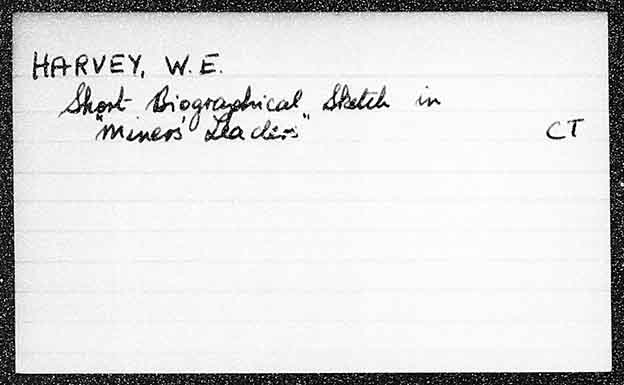 HARVEY, W.E.
Short Biographical Sketch in
"Miners' Leaders"
CT